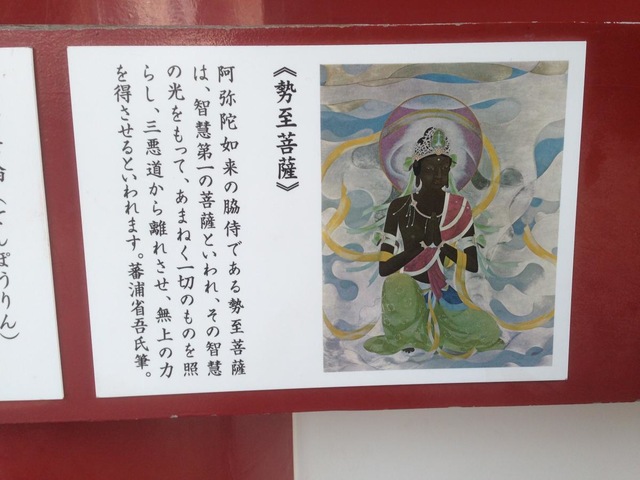 《勢至菩薩》
阿弥陀如来の脇侍である勢至菩薩
は、智慧第一の菩薩といわれ、その智慧
の光をもって、あまねく一切のものを照
らし、三悪道から離れさせ、無上の力
を得させるといわれます。蕃浦省吾氏筆。
んぽうりん）